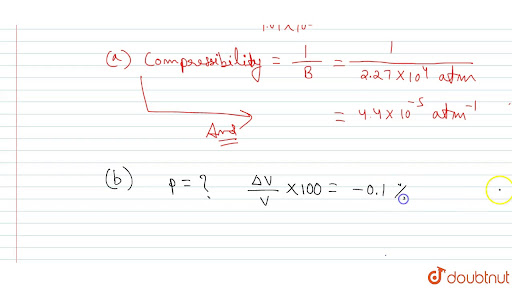 (a) Compressibility = 1/B = 1/(2.27 × 10⁴ atm)
= 4.4 × 10⁻⁵ atm⁻¹
Ans
(b) P = ? ΔV/V × 100 = -0.1 %
doubtnut